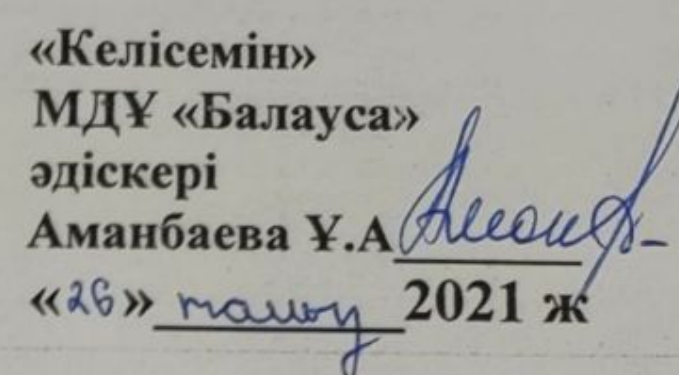 «Келісемін»
МДҰ «Балауса»
әдіскері
Аманбаева Ұ.А
«26» тамыз 2021 ж